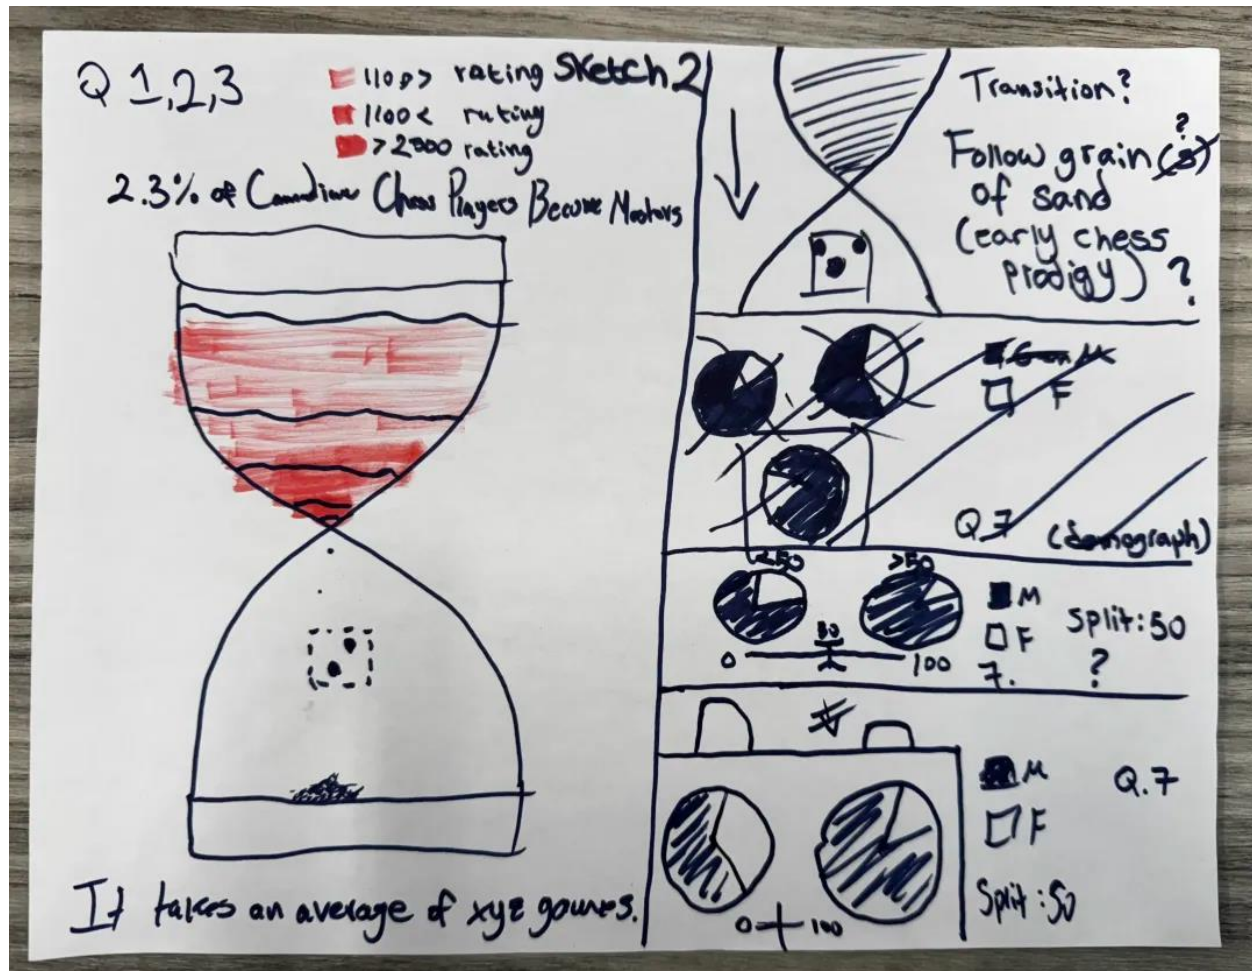 Q 1,2,3
Sketch 2
rating
1100< rating
>2300 rating
2.3% of Canadian Chess Players Become Masters
It takes an average of xyz games.
Transition?
?
Follow grain (s)
of sand
(early chess
prodigy) ?
F
Q.7 (demograph)
<50 >50
M
F
7.
Split:50
?
50
0 100
M
F
Q.7
Split:50
0 100